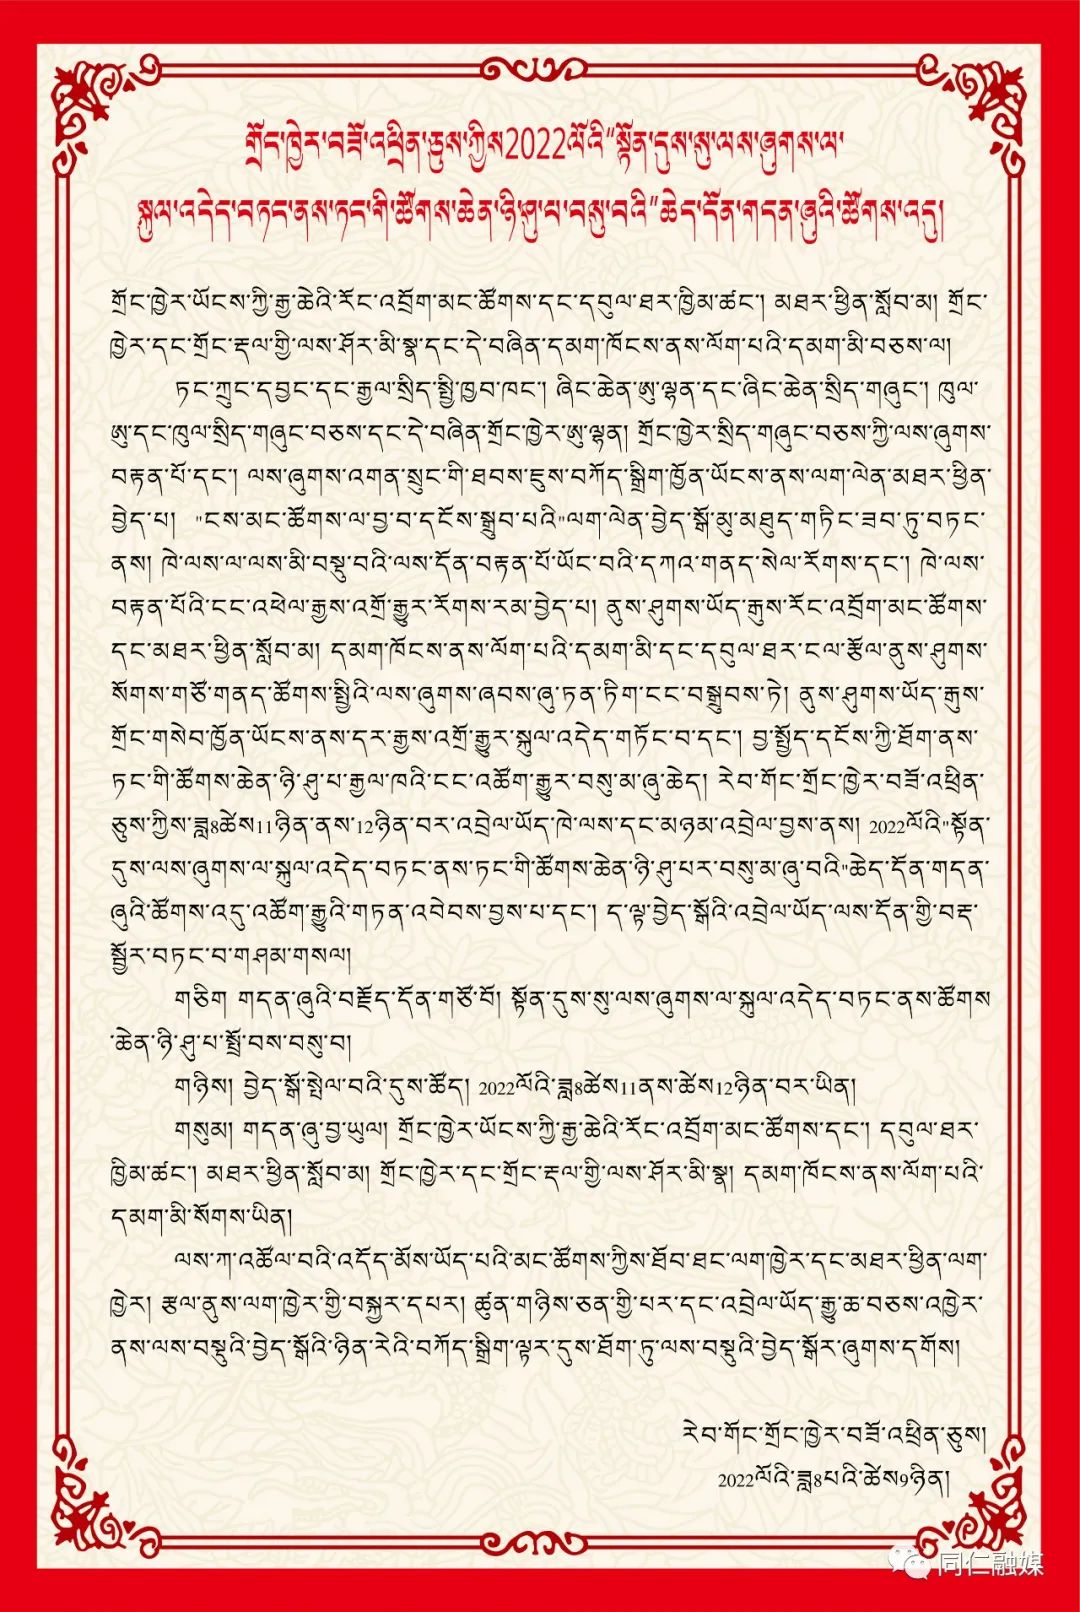 གྲོང་ཁྱེར་བཟོ་འཕྲིན་ཅུས་ཀྱིས2022ལོའི“སྟོན་དུས་སུ་ལས་ཞུགས་ལ་
སྐུལ་འདེད་བཏང་ནས་ཏང་གི་ཚོགས་ཆེན་ཉི་ཤུ་པ་བསུ་བའི”ཆེད་དོན་གདན་ཞུའི་ཚོགས་འདུ།
གྲོང་ཁྱེར་ཡོངས་ཀྱི་རྒྱ་ཆེའི་རོང་འབྲོག་མང་ཚོགས་དང་དབུལ་ཐར་ཁྱིམ་ཚང་། མཐར་ཕྱིན་སློབ་མ། གྲོང་
ཁྱེར་དང་གྲོང་རྡལ་གྱི་ལས་ཤོར་མི་སྣ་དང་དེ་བཞིན་དམག་ཁོངས་ནས་ལོག་པའི་དམག་མི་བཅས་ལ།
ཏང་ཀྲུང་དབྱང་དང་རྒྱལ་སྲིད་སྤྱི་ཁྱབ་ཁང་། ཞིང་ཆེན་ཨུ་ལྷན་དང་ཞིང་ཆེན་སྲིད་གཞུང་། ཁུལ་
ཨུ་དང་ཁུལ་སྲིད་གཞུང་བཅས་དང་དེ་བཞིན་གྲོང་ཁྱེར་ཨུ་ལྷན། གྲོང་ཁྱེར་སྲིད་གཞུང་བཅས་ཀྱི་ལས་ཞུགས་
བརྟན་པོ་དང་། ལས་ཞུགས་འགན་སྲུང་གི་ཐབས་ཇུས་བཀོད་སྒྲིག་ཁྱོན་ཡོངས་ནས་ལག་ལེན་མཐར་ཕྱིན་
བྱེད་པ། "ངས་མང་ཚོགས་ལ་བྱ་བ་དངོས་སྒྲུབ་པའི"ལག་ལེན་བྱེད་སྒོ་མུ་མཐུད་གཏིང་ཟབ་ཏུ་བཏང་
ནས། ཁེ་ལས་ལ་ལས་མི་བསྡུ་བའི་ལས་དོན་བརྟན་པོ་ཡོང་བའི་དཀའ་གནད་སེལ་རོགས་དང་། ཁེ་ལས་
བརྟན་པོའི་ངང་འཕེལ་རྒྱས་འགྲོ་རྒྱུར་རོགས་རམ་བྱེད་པ། ནུས་ཤུགས་ཡོད་རྒུས་རོང་འབྲོག་མང་ཚོགས་
དང་མཐར་ཕྱིན་སློབ་མ། དམག་ཁོངས་ནས་ལོག་པའི་དམག་མི་དང་དབུལ་ཐར་ངལ་རྩོལ་ནུས་ཤུགས་
སོགས་གཙོ་གནད་ཚོགས་སྤྱིའི་ལས་ཞུགས་ཞབས་ཞུ་ཏན་ཏིག་ངང་བསྒྲུབས་ཏེ། ནུས་ཤུགས་ཡོད་རྒུས་
གྲོང་གསེབ་ཁྱོན་ཡོངས་ནས་དར་རྒྱས་འགྲོ་རྒྱུར་སྐུལ་འདེད་གཏོང་བ་དང་། བྱ་སྤྱོད་དངོས་ཀྱི་ཐོག་ནས་
ཏང་གི་ཚོགས་ཆེན་ཉི་ཤུ་པ་རྒྱལ་ཁའི་ངང་འཚོག་རྒྱུར་བསུ་མ་ཞུ་ཆེད། རེབ་གོང་གྲོང་ཁྱེར་བཟོ་འཕྲིན་
ཅུས་ཀྱིས་ཟླ8ཚེས11ཉིན་ནས་12ཉིན་བར་འབྲེལ་ཡོད་ཁེ་ལས་དང་མཉམ་འབྲེལ་བྱས་ནས། 2022ལོའི"སྟོན་
དུས་ལས་ཞུགས་ལ་སྐུལ་འདེད་བཏང་ནས་ཏང་གི་ཚོགས་ཆེན་ཉི་ཤུ་པར་བསུ་མ་ཞུ་བའི"ཆེད་དོན་གདན་
ཞུའི་ཚོགས་འདུ་འཚོག་རྒྱུའི་གཏན་འབེབས་བྱས་པ་དང་། ད་ལྟ་བྱེད་སྒོའི་འབྲེལ་ཡོད་ལས་དོན་གྱི་བརྡ་
སྦྱོར་བཏང་བ་གཤམ་གསལ།
གཅིག གདན་ཞུའི་བརྗོད་དོན་གཙོ་བོ། སྟོན་དུས་སུ་ལས་ཞུགས་ལ་སྐུལ་འདེད་བཏང་ནས་ཚོགས
་ཆེན་ཉི་ཤུ་པ་སྤྲོ་བས་བསུ་བ།
གཉིས། བྱེད་སྒོ་སྤེལ་བའི་དུས་ཚོད། 2022ལོའི་ཟླ8ཚེས11ནས་ཚེས12ཉིན་བར་ཡིན།
གསུམ། གདན་ཞུ་བྱ་ཡུལ། གྲོང་ཁྱེར་ཡོངས་ཀྱི་རྒྱ་ཆེའི་རོང་འབྲོག་མང་ཚོགས་དང་། དབུལ་ཐར་
ཁྱིམ་ཚང་། མཐར་ཕྱིན་སློབ་མ། གྲོང་ཁྱེར་དང་གྲོང་རྡལ་གྱི་ལས་ཤོར་མི་སྣ། དམག་ཁོངས་ནས་ལོག་པའི་
དམག་མི་སོགས་ཡིན།
ལས་ཀ་འཚོལ་བའི་འདོད་མོས་ཡོད་པའི་མང་ཚོགས་ཀྱིས་ཐོབ་ཐང་ལག་ཁྱེར་དང་མཐར་ཕྱིན་ལག་
ཁྱེར། རྩལ་ནུས་ལག་ཁྱེར་གྱི་བསྐྱར་དཔར། ཚུན་གཉིས་ཅན་གྱི་པར་དང་འབྲེལ་ཡོད་རྒྱུ་ཆ་བཅས་འཁྱེར་
ནས་ལས་བསྡུའི་བྱེད་སྒོའི་ཉིན་རེའི་བཀོད་སྒྲིག་ལྟར་དུས་ཐོག་ཏུ་ལས་བསྡུའི་བྱེད་སྒོར་ཞུགས་དགོས།
རེབ་གོང་གྲོང་ཁྱེར་བཟོ་འཕྲིན་ཅུས།
2022ལོའི་ཟླ8པའི་ཚེས9ཉིན།
同仁融媒